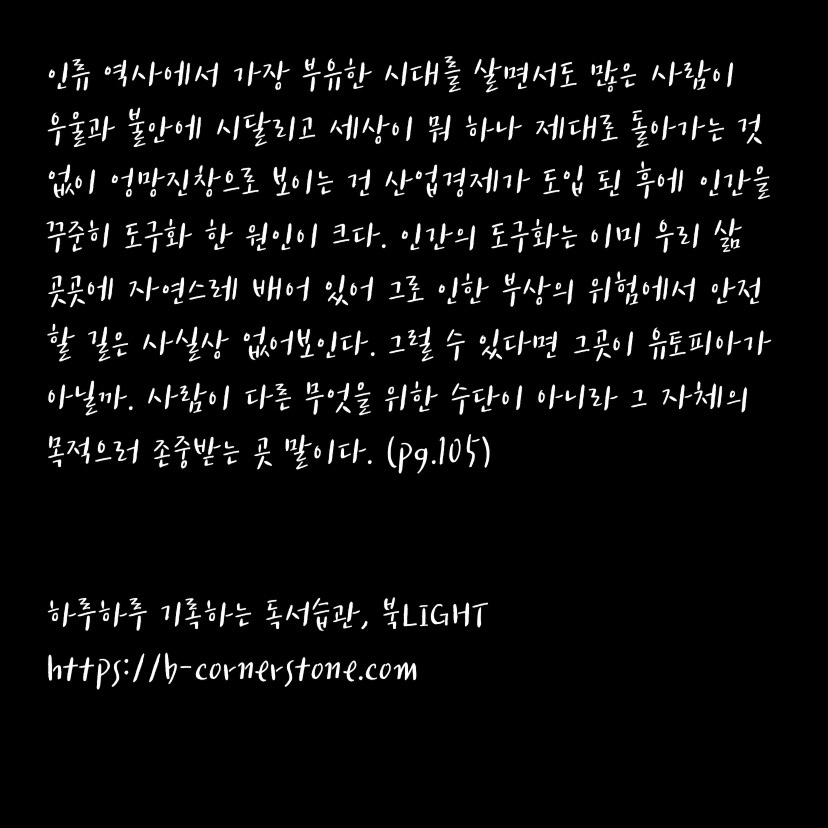 인류 역사에서 가장 부유한 시대를 살면서도 많은 사람이
우울과 불안에 시달리고 세상이 뭐 하나 제대로 돌아가는 것
없이 엉망진창으로 보이는 건 산업경제가 도입 된 후에 인간을
꾸준히 도구화 한 원인이 크다. 인간의 도구화는 이미 우리 삶
곳곳에 자연스레 배어 있어 그로 인한 부상의 위험에서 안전
할 길은 사실상 없어보인다. 그럴 수 있다면 그곳이 유토피아가
아닐까. 사람이 다른 무엇을 위한 수단이 아니라 그 자체의
목적으러 존중받는 곳 말이다. (pg.105)
하루하루 기록하는 독서습관, 북LIGHT
https://b-cornerstone.com